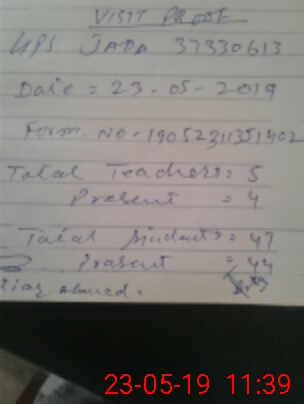 VISIT PROOF
GPS JADA 37330613
Date = 23-05-2019
Form. No - 19052311351402
Total Teachers = 5
Present = 4
Total Students = 47
Present = 44
tiaz Ahmed.
23-05-19 11:39